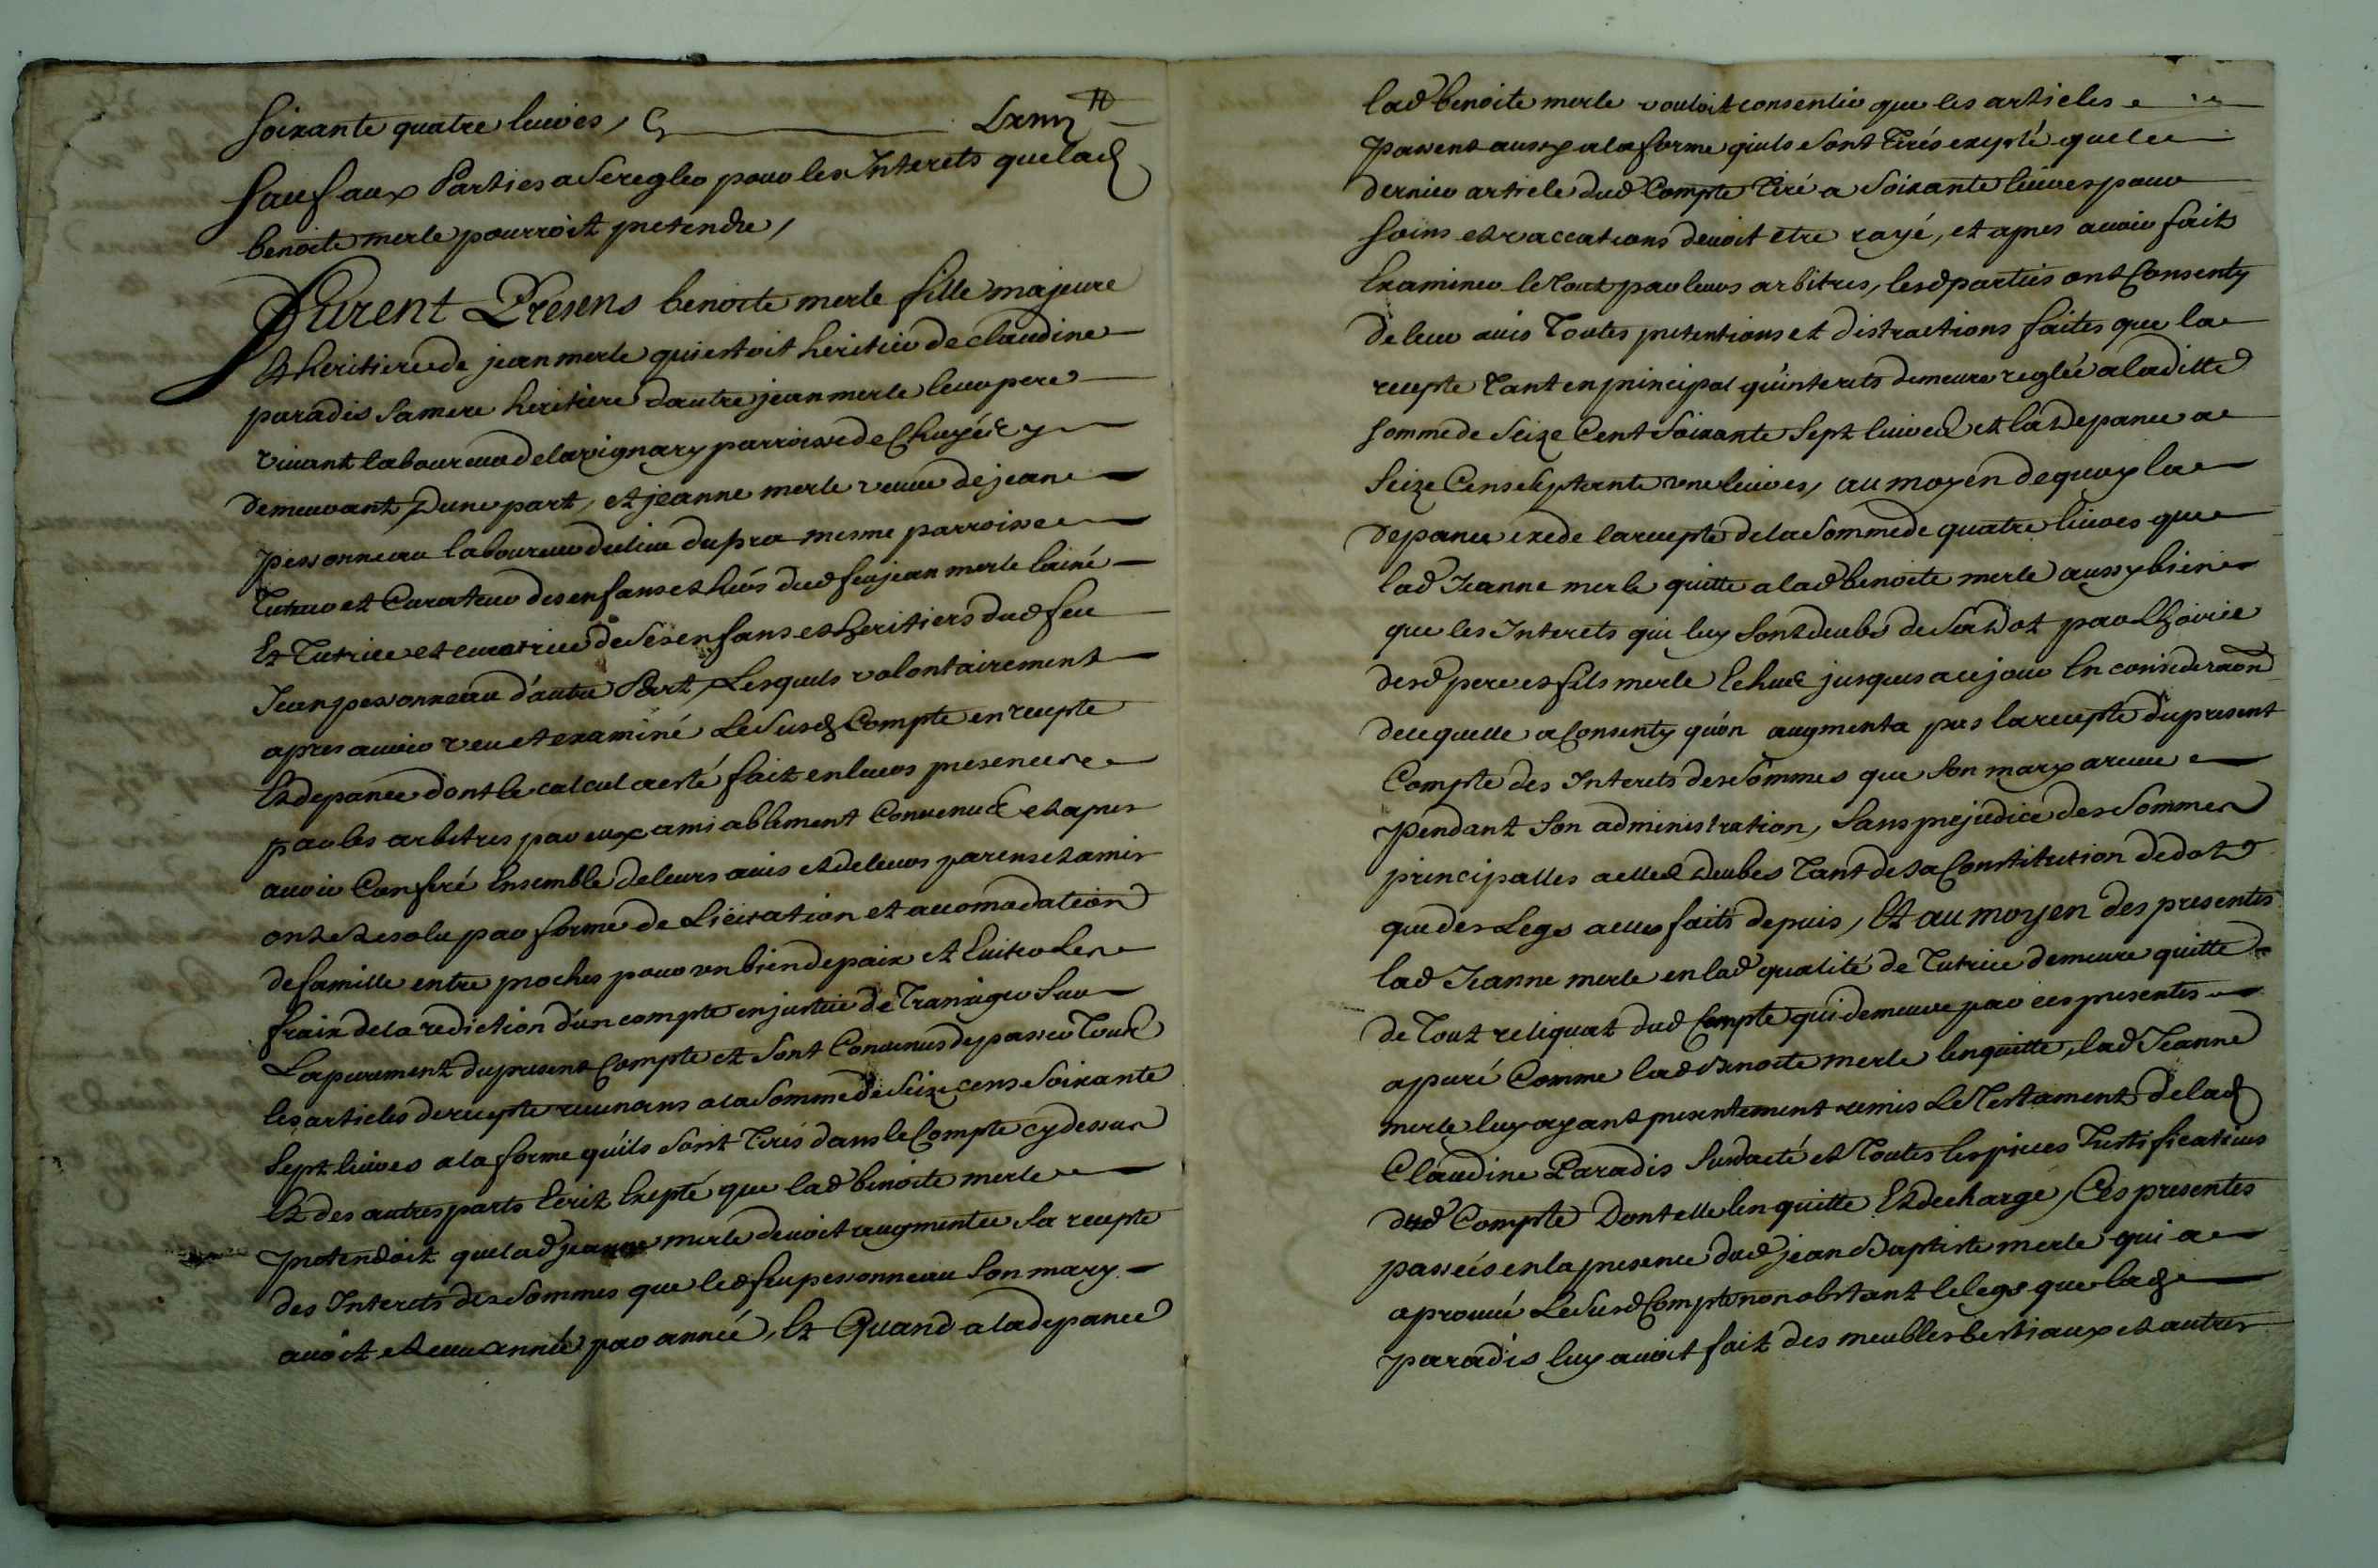 soixante quatre livres, Cy Lxiiii ₶
sauf aux Parties a se regler pour les Interets que lad
benoite merle pourroit pretendre,
Furent Presens benoite merle fille majeure
Et heritiere de jean merle qui estoit heritier de claudine
paradis sa mere heritiere dautre jean merle leur pere
vivant laboureur de lavignary parroisse de y
demeurant Dune part, et jeanne merle veuve de jean
pessonneau laboureur du lieu du pra mesme parroisse
Tuteur et Curateur des enfans et hers dud feu jean merle lainé
Et Tutrice et curatrice de ses enfans et heritiers dud feu
Jean pessonneau d'autre Part, Lesquels volontairement
apres avoir veu et examiné Le susd Compte en recepte
Et depance dont le calcul a esté fait en leurs presences
par les arbitres par eux amiablement Convenus et apres
avoir Conferé Ensemble de leurs avis et de leurs parens et amis
ont resolu par forme de Licitation et accomodation
de famille entre proches pour un bien de paix et Eviter les
fraix de la rediction d'un compte en justice de Transiger sur
Lapurement du present Compte et sont Convenus de passer Tous
les articles de recepte revenans a la somme de seize cens soixante
sept livres a la forme qu'ils sont Tirés dans le Compte cy dessus
Et des autres parts Ecrit Excepté que lad benoite merle
pretendoit que lad jeanne merle devoit augmenter sa recepte
des Interets des sommes que led feu pessonneau son mary
avoit receu année par année, Et Quand a la depance
lad benoite merle vouloit consentir que les articles
passent aussy a la forme qu'ils sont Tirés excepté que le
dernier article dud Compte Tiré a soixante livres pour
soins et vaccations devoit etre rayé, et apres avoir fait
Examiner le Tout par leurs arbitres, lesd parties ont Consenty
de leur avis Toutes pretentions et distractions faites que la
recepte Tant en principal qu'interets demeure reglée a laditte
somme de seize Cent soixante sept livres et la Depance a
seize Cens septante une livres, au moyen de quoy la
Depance exede la recepte de la somme de quatre livres que
lad Jeanne merle quitte a lad benoite merle aussy bien
que les Interets qui luy sont deubs de sa Dot par Lhoirie
desd pere et fils merle Echus jusques a ce jour En consideraon
de ce quelle a Consenty qu'on augmenta pas la recepte du present
Compte des Interets des sommes que son mary a receu
pendant son administration, sans prejudice des sommes
principalles a elle deubes Tant de sa Constitution de dot
que des Legs a elle faits depuis, Et au moyen des presentes
lad Jeanne merle en lad qualité de Tutrice demeure quitte
de Tout reliquat dud Compte qui demeure par ces presentes
apuré Comme lad Benoite merle lenquitte, lad Jeanne
merle luy ayant presentement remis Le Testament de lad
Claudine Paradis susdacté et Toutes les pieces Justificatives
dud Compte Dont elle len quitte Et decharge, Ces presentes
passées en la presence dud jean Baptiste merle qui a
aprouvé Le susd Compte nonobstant le legs que lad
paradis luy avoit fait des meubles bestiaux et autres